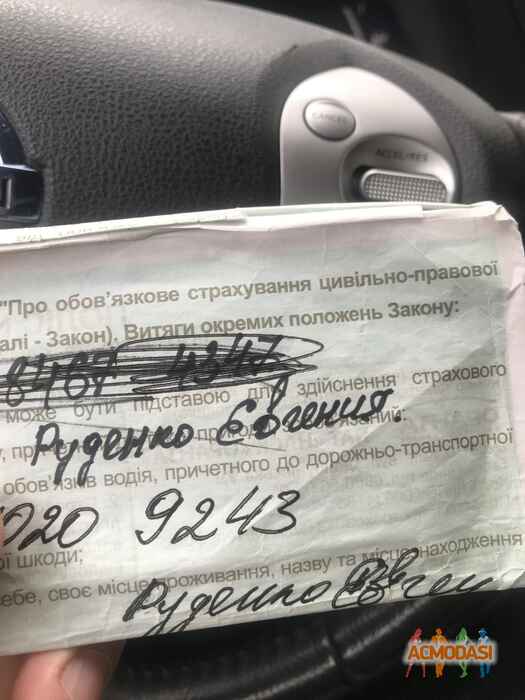 CANCEL
ACCEL/RES
"Про обов'язкове страхування цивільно-правової
алі - Закон). Витяги окремих положень Закону:
8467 4347
може бути підставою для здійснення страхового
Руденко Евгения.
обов'язків водія, причетного до дорожньо-транспортної
920 9243
ої шкоди;
ебе, своє місце проживання, назву та місце находження
Руденко Евген
ACMODASI